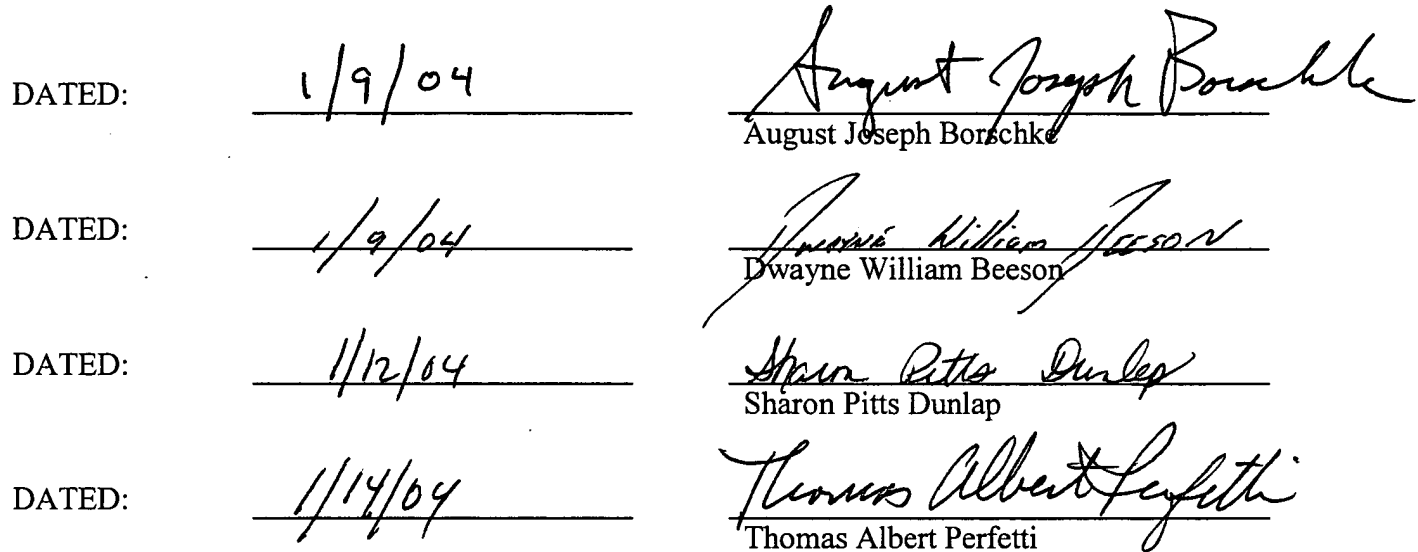 DATED: 1/9/04 August Joseph Borschke
August Joseph Borschke
DATED: 1/9/04 Dwayne William Beeson
Dwayne William Beeson
DATED: 1/12/04 Sharon Pitts Dunlap
Sharon Pitts Dunlap
DATED: 1/14/04 Thomas Albert Perfetti
Thomas Albert Perfetti